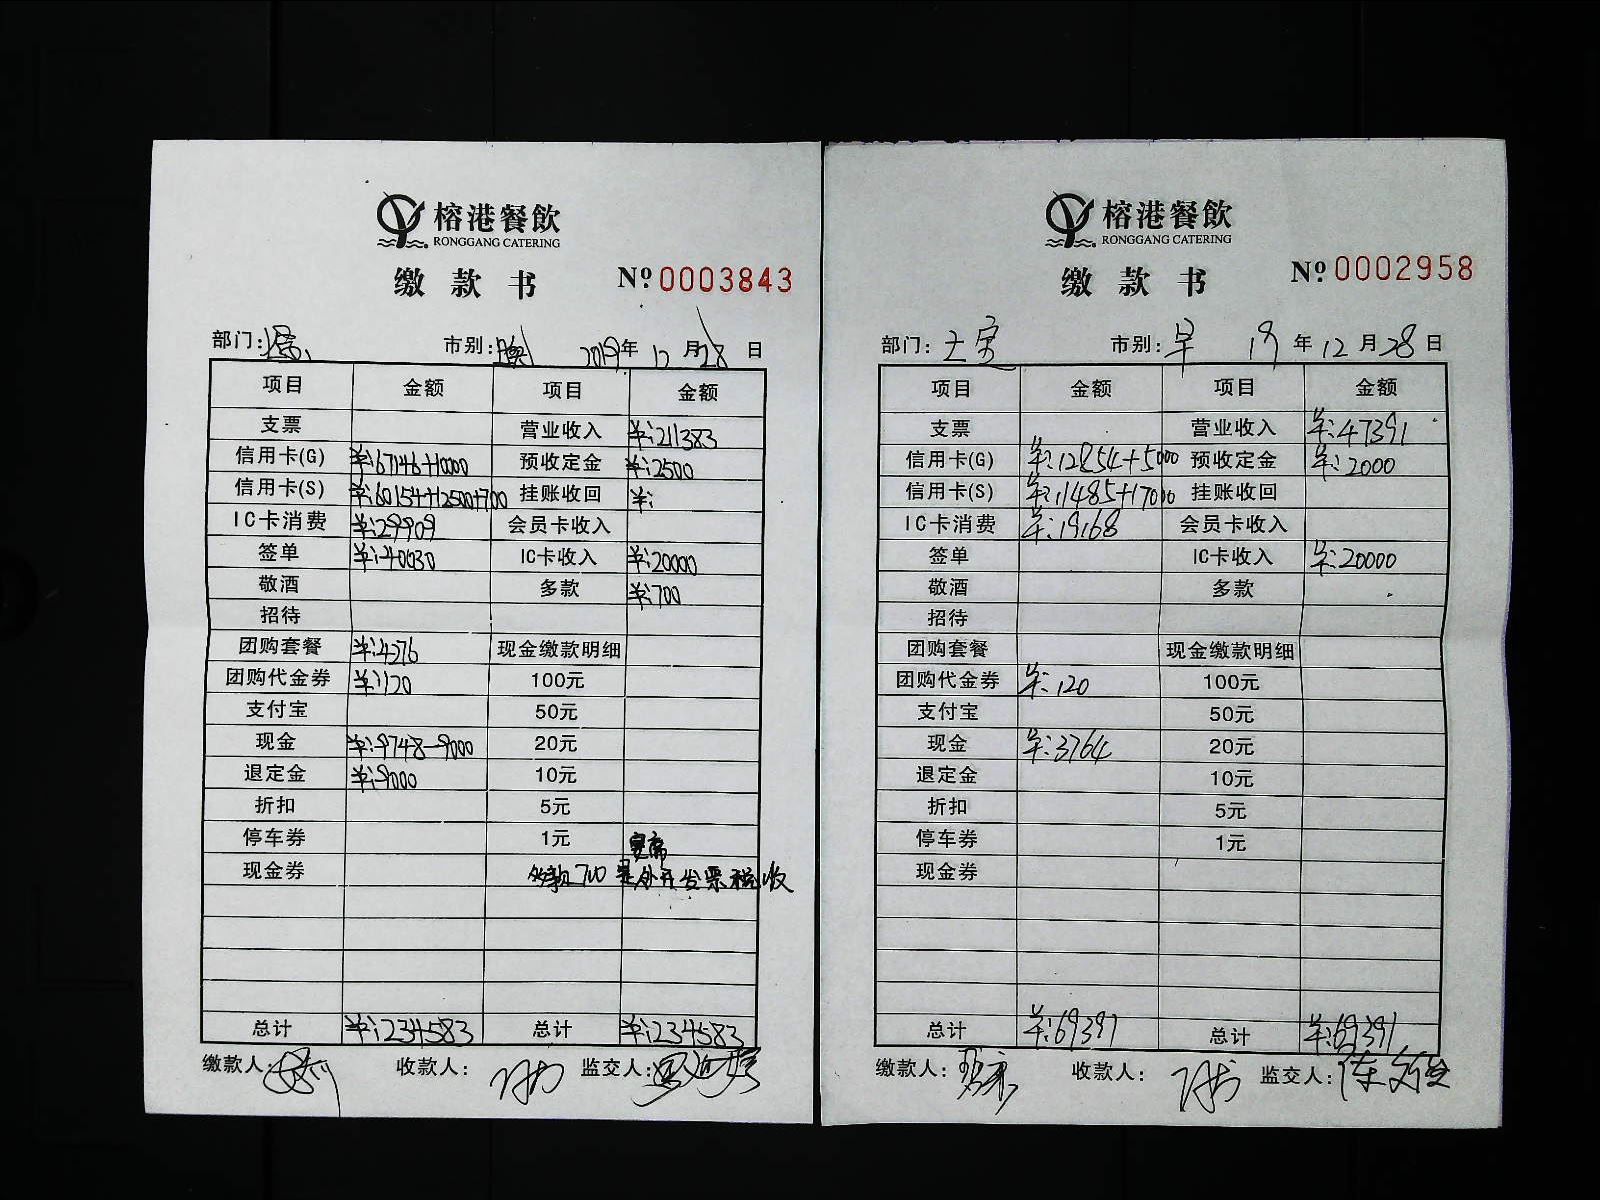 榕港餐飲
RONGGANG CATERING
缴款书 Nº 0003843
部门: 市别:晚 2019年 12 月 28 日
项目 金额 项目 金额
支票 营业收入 ¥:211383
信用卡(G) ¥:67146+10000 预收定金 ¥:2500
信用卡(S) ¥:60154+12500+700 挂账收回 ¥:
IC卡消费 ¥:29909 会员卡收入
签单 ¥:40030 IC卡收入 ¥:20000
敬酒 多款 ¥:700
招待
团购套餐 ¥:4276 现金缴款明细
团购代金券 ¥:120 100元
支付宝 50元
现金 ¥:9748-9000 20元
退定金 ¥:9000 10元
折扣 5元
停车券 1元 宴席
现金券 多款700是外开发票税收
总计 ¥:234583 总计 ¥:234583
缴款人: 收款人: 监交人:
榕港餐飲
RONGGANG CATERING
缴款书 Nº 0002958
部门: 市别:早 19 年 12 月 28 日
项目 金额 项目 金额
支票 营业收入 ¥:47391
信用卡(G) ¥:12854+5000 预收定金 ¥:2000
信用卡(S) ¥:11485+17000 挂账收回
IC卡消费 ¥:19168 会员卡收入
签单 IC卡收入 ¥:20000
敬酒 多款
招待
团购套餐 现金缴款明细
团购代金券 ¥:120 100元
支付宝 50元
现金 ¥:3764 20元
退定金 10元
折扣 5元
停车券 1元
现金券
总计 ¥:69391 总计 ¥:69391
缴款人: 收款人: 监交人: